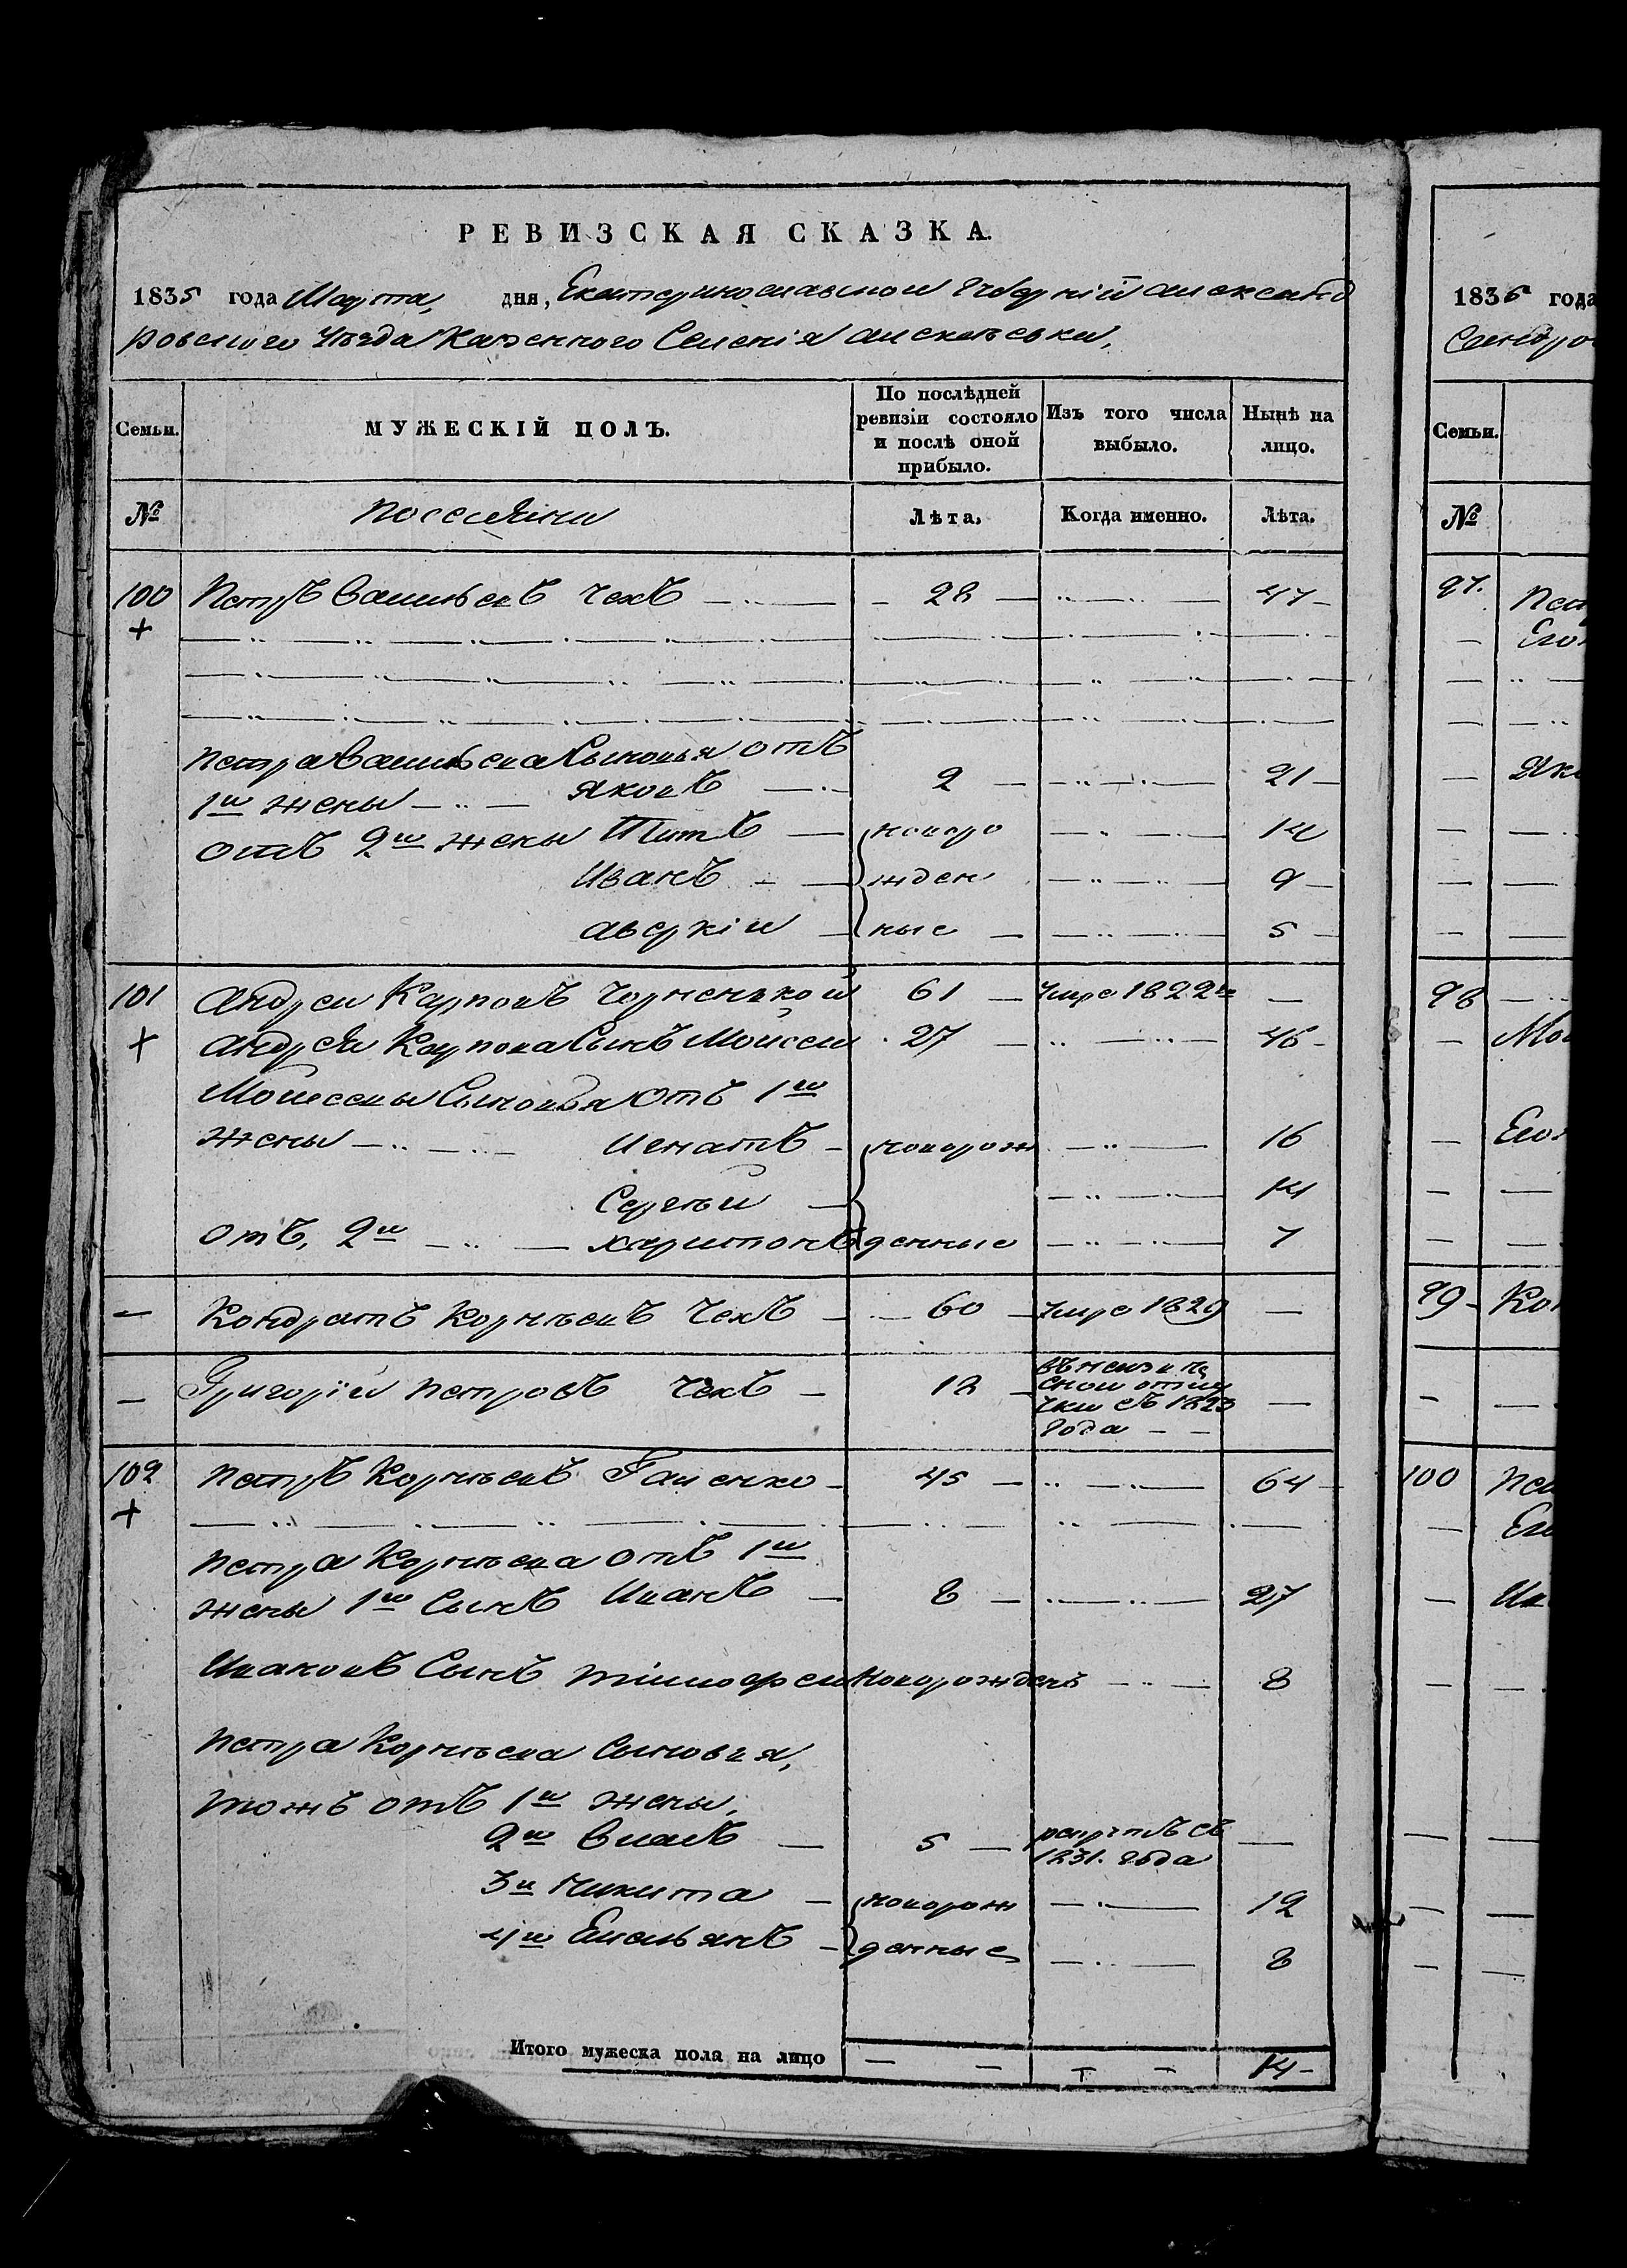 РЕВИЗСКАЯ СКАЗКА.
1835 года Марта, дня, Екатеринославской Губерній Александ
ровского Уѣзда Казенного Селенія Алексѣевки,
Семьи.
МУЖЕСКІЙ ПОЛЪ.
По послѣдней ревизіи состояло и послѣ оной прибыло.
Изъ того числа выбыло.
Нынѣ на лицо.
№
Поселяни
Лѣта,
Когда именно.
Лѣта.
100 Петръ Васильевъ Чехъ 28 47
Петра Васильева Сыновья отъ
1й жены Яковъ 2 21
отъ 2й жены Титъ новоро 14
Иванъ жден 9
Аверкіи ные 5
101 Андреи Карповъ Чорненькой 61 умре 1822го
Андрея Карпова Сынъ Моисеи 27 46
Моисеевы Сыновья отъ 1й
жены Игнатъ новорож 16
Сергѣй 14
отъ, 2й Харитонъ денные 7
Кондратъ Корнѣевъ Чехъ 60 умре 1829
Григорій Петровъ Чехъ 12
съ 1823
года
102 Петръ Корнѣевъ Галенко 45 64
Петра Корнѣева отъ 1й
жены 1й Сынъ Иванъ 8 27
Ивановъ Сынъ Тімофеи новорожденъ 8
Петра Корнѣева Сыновья,
тожъ отъ 1й жены,
2й Власъ 5 рекрутъ съ
1831. года
3й Никита новорож 12
4й Емельянъ денные 8
Итого мужеска пола на лицо 14
1835 года
Семьи.
№
97.
98
99
100